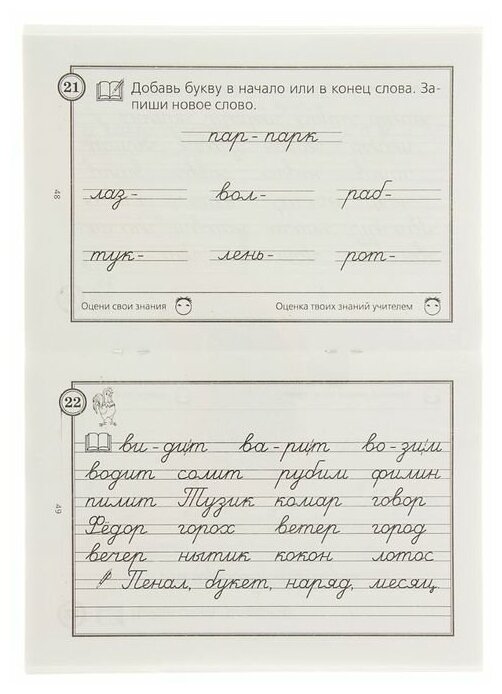 21
Добавь букву в начало или в конец слова. За-
пиши новое слово.
пар - парк
лаз- вол- раб-
тук- лень- рот-
Оцени свои знания Оценка твоих знаний учителем
48
22
ви - дит ва - рит во - зим
водит солит рубим филин
пилит Тузик комар говор
Фёдор горох ветер город
вечер нытик кокон лотос
Пенал, букет, наряд, месяц
49